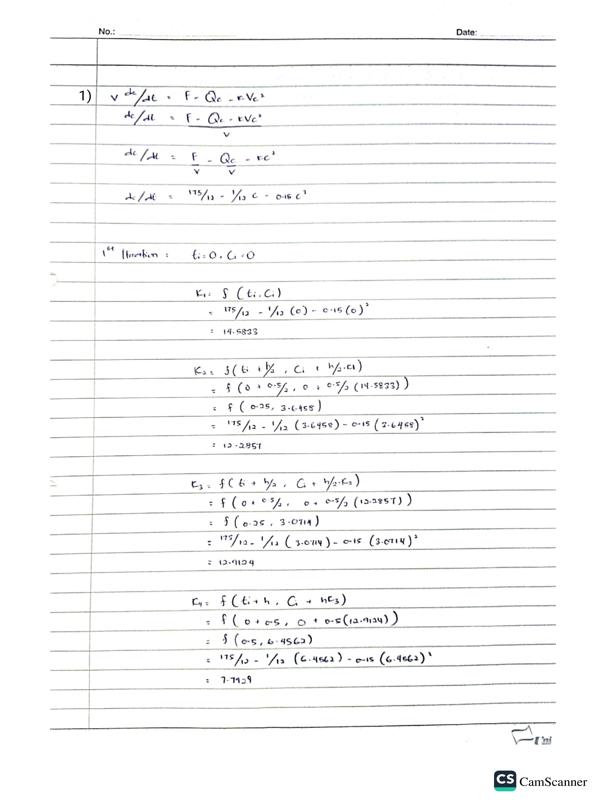 No.: Date:
1) V dc/dt = F - Qc - kVc²
dc/dt = F - Qc - kVc²
V
dc/dt = F - Qc - kc²
V V
dc/dt = 175/12 - 1/12 c - 0.15 c²
1st Iteration : ti = 0, Ci = 0
K1 = f (ti, Ci)
= 175/12 - 1/12 (0) - 0.15 (0)²
= 14.5833
K2 = f(ti + h/2, Ci + h/2.K1)
= f (0 + 0.5/2, 0 + 0.5/2 (14.5833))
= f (0.25, 3.6458)
= 175/12 - 1/12 (3.6458) - 0.15 (3.6458)²
= 12.2857
K3 = f(ti + h/2, Ci + h/2.K2)
= f (0 + 0.5/2, 0 + 0.5/2 (12.2857))
= f (0.25, 3.0714)
= 175/12 - 1/12 (3.0714) - 0.15 (3.0714)²
= 12.9124
K4 = f (ti + h, Ci + hK3)
= f (0 + 0.5, 0 + 0.5(12.9124))
= f (0.5, 6.4562)
= 175/12 - 1/12 (6.4562) - 0.15 (6.4562)²
= 7.7929
CS CamScanner